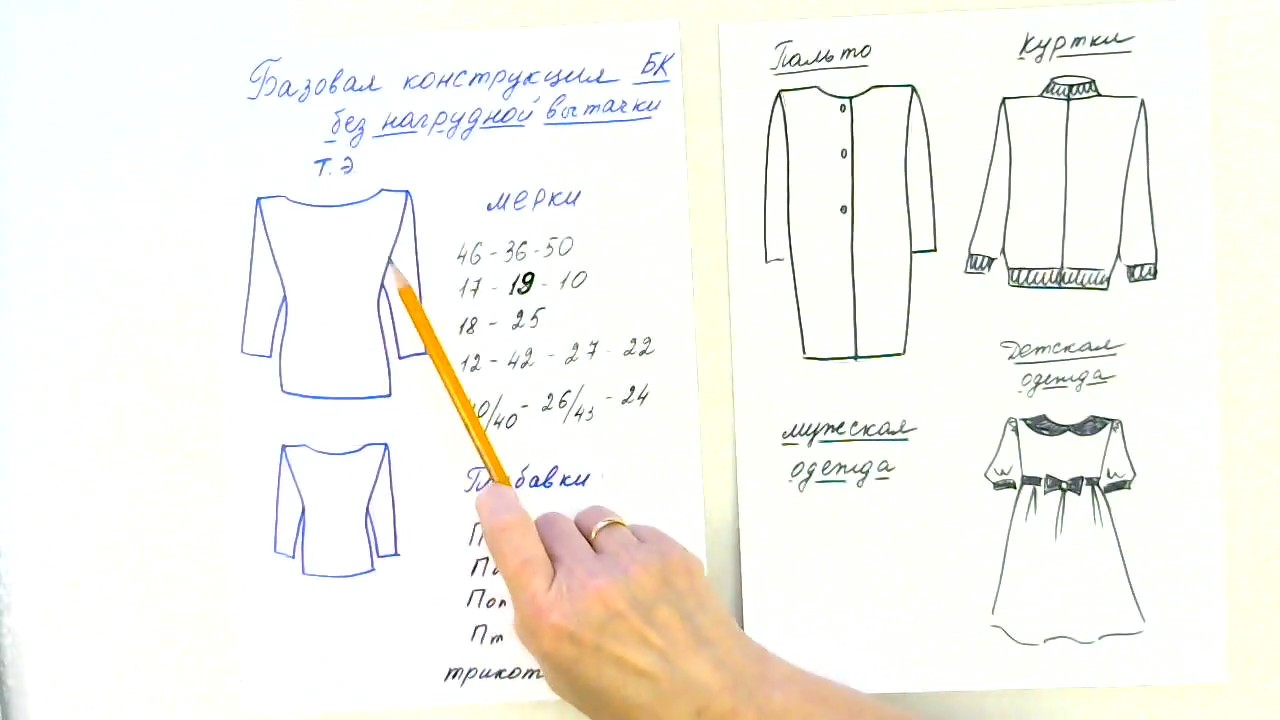 Базовая конструкция БК
без нагрудной вытачки
Т.Э
мерки
46 - 36 - 50
17 - 19 - 10
18 - 25
12 - 42 - 27 - 22
/40 - 26/43 - 24
Пальто
Куртки
Детская
одежда
мужская
одежда